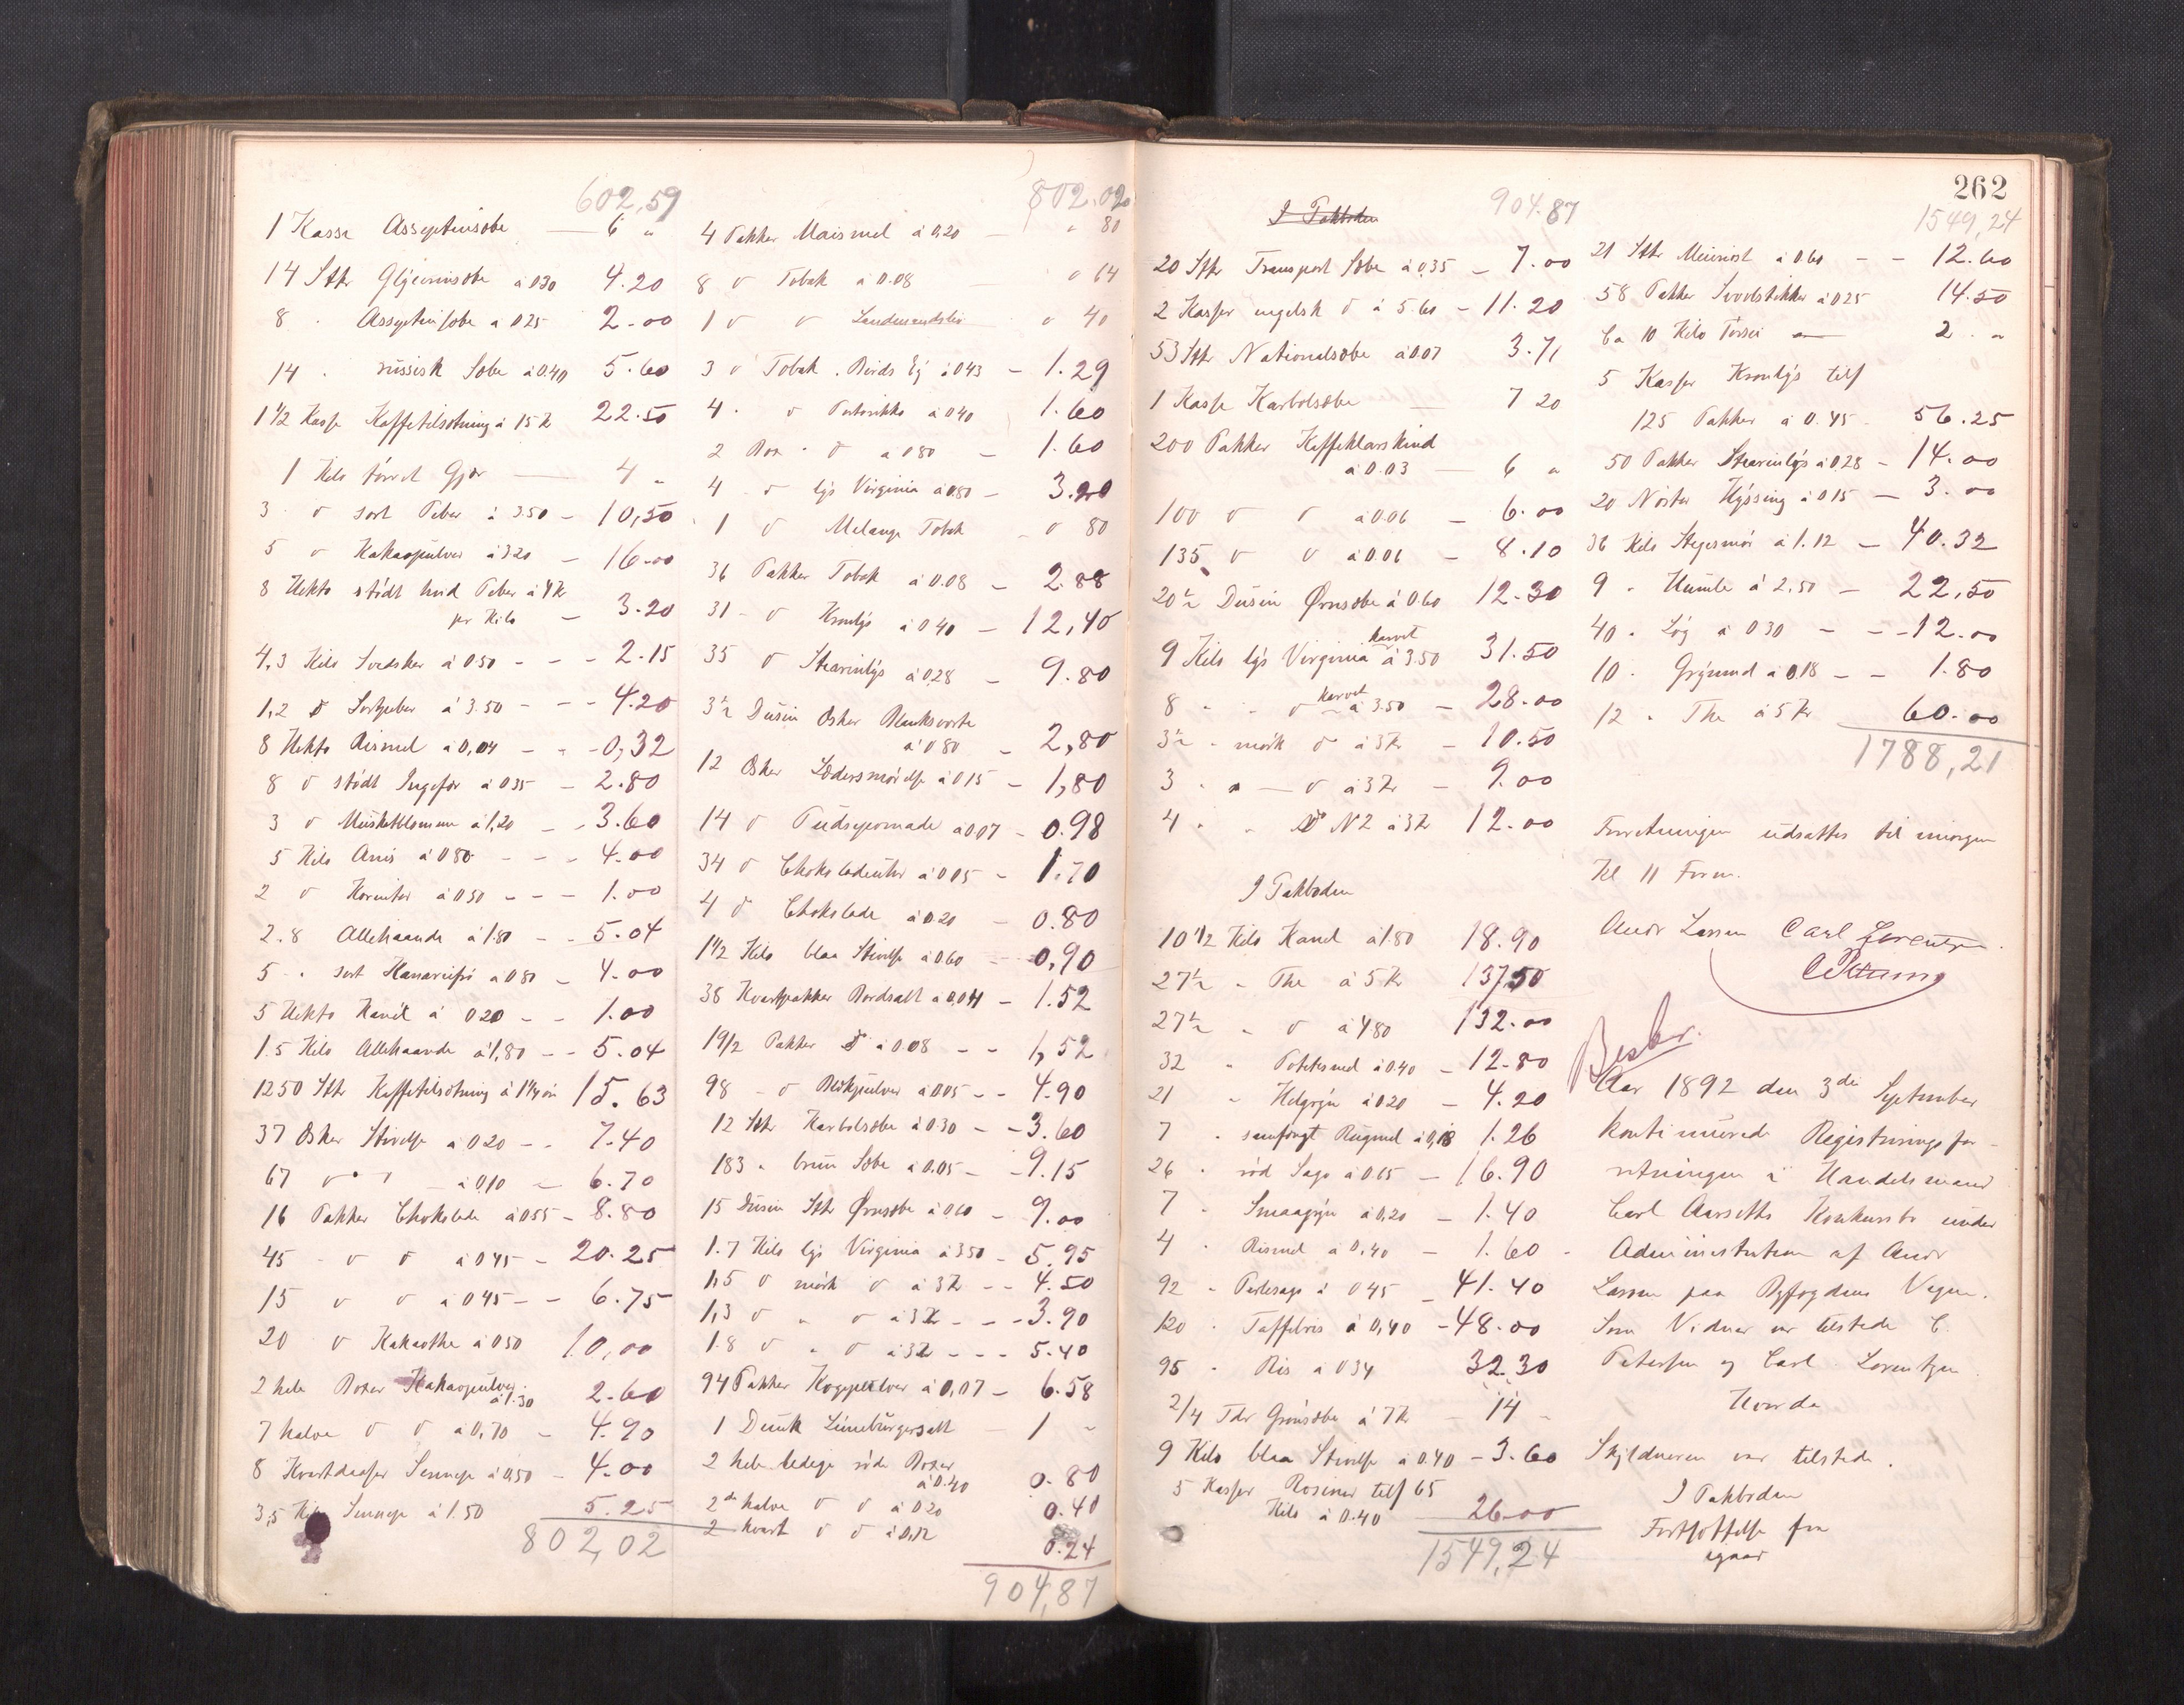 602,59
1 Kasse Asseptinsæbe — 6 "
14 Stkr Glycerinsæbe à 030 4.20
8 . Asseptinsæbe a 025 2.00
14 . russisk Sæbe à 0.40 5.60
1 1/2 Kasse Kaffetilsætning à 15 Kr 22.50
1 Kilo tørret Gjær — 4 "
3 . o sort Peber à 3.50 – 10,50
5 o Kakaopulver à 320 – 16.00
8 Hekto stødt hvid Peber à 4 Kr
pr Kilo – 3.20
4,3 Kilo Svedsker à 050 - - - 2.15
1,2 o Sortpeber à 3.50 - - - 4.20
8 Hekto Rismel à 0,04 - - - 0,32
8 o stødt Ingefær à 035 – 2.80
3 o Muskatblomme à 1,20 - - 3.60
5 Kilo Anis à 080 - - - 4.00
2 o Korinter à 050 - - - 1.00
2.8 Allehaande à 1.80 - - 5.04
5 - " sort Kanariefrø a 080 – 4.00
5 Hekto Kanel à 020 - - 1.00
1.5 Kilo Allehaande à 1,80 - - 5.04
1250 Stkr Kaffetilsætning à 1 1/4 øre 15.63
37 Æsker Stivelse à 020 - - 7.40
67 o " — à 0,10 – 6.70
16 Pakker Chokolade à 055 – 8.80
45 - o o à 045 – 20.25
15 o o à 045 - - 6.75
20 o Kakaothe à 050 10,00
2 hele Boxer Kakaopulver
à 1.30 2.60
7 halve o o a 0,70 – 4.90
8 Kvartdaaser Sennep à 0,50 – 4.00
3,5 Kilo Sennep à 1.50 5.25
802,02
802.02
4 Pakker Maismel à 0,20 — " 80
8 o Tobak a 0.08 o 64
1 o o o 40
3 o Tobak . Birds Ey à 043 – 1.29
4 . o Portorikko à 040 1.60
2 Box . o a 080 – 1.60
4 - o lys Virginia à 080 – 3.20
1 o Melange Tobak – o 80
36 Pakker Tobak à 0.08 – 2.88
31 - o Kronlys à 040 – 12,40
35 o Stearinlys à 0,28 – 9.80
3 1/2 Dusin Æsker Blanksværte
à 080 – 2,80
12 Æsker Lædersmørelse à 0,15 – 1,80
14 o Pudsepomade à 0.07 – 0.98
34 o à 0.05 – 1.70
4 o Chokolade à 0.20 – 0.80
1 1/2 Kilo blaa Stivelse à 0.60 – 0,90
38 Kvartpakker Bordsalt à 0,04 – 1.52
19/2 Pakker o à 0.08 - - 1,52
98 – o Blækpulver à 005 - - 4.90
12 Stkr Karbolsæbe à 0.30 - - 3.60
183 . brun Sæbe à 0.05 – - 9.15
15 Dusin Stkr Ørnsæbe à 0.60 – 9.00
1.7 Kilo lys Virginia à 350 – 5.95
1,5 o mørk o à 3 Kr - - 4.50
1,3 o " o à 3 Kr - - - 3.90
1.8 o " o à 3 Kr - - - 5.40
94 Pakker Kogepulver à 0,07 – 6.58
1 Dunk Lüneburgersalt — 1 –
2 hele ledige røde Boxer
à 0.40 0.80
2 do halve o o à 020 0.40
2 kvart o o à 0,12 0.24
904,87
262
I Pakboden
904.87
20 Stkr Transport Sæbe à 0.35 – 7.00
2 Kasser engelsk o à 5.60 – 11.20
53 Stkr Nationalsæbe à 0.07 3.71
1 Kasse Karbolsæbe — 7 20
200 Pakker Kaffeklarskind
à 0.03 — 6 "
100 o o à 0.06 – 6.00
135 o o à 0.06 – 8.10
20 1/2 Dusin Ørnsæbe à 0.60 12.30
9 Kilo lys Virginia karvet à 3.50 31.50
8 - - o karvet à 3.50 – 28.00
3 1/2 - mørk o à 3 Kr – 10.50
3 . " — o à 3 Kr – 9.00
4 . " o N 2 à 3 Kr 12.00
I Pakboden
10 1/2 Kilo Kanel à 1.80 18.90
27 1/2 - The à 5 Kr 137,50
27 1/2 " o à 4.80 132.00
32 " Potetesmel à 0.40 – 12.80
21 " Helgryn à 020 – 4.20
7 . samfængt Rugmel à 0,18 1.26
26 . rød Sago à 0.65 – 16.90
7 . Smaagryn à 0,20 – 1.40
4 . Rismel à 0,40 – 1.60
92 - Perlesago à 045 – 41.40
120 . Taffelris à 0,40 – 48.00
95 . Ris à 034 32.30
2/4 Tdr Grønsæbe à 7 Kr – 14 –
9 Kilo blaa Stivelse à 0.40 – 3.60
5 Kasser Rosiner tils 65
Kilo à 0.40 — 26.00
1549,24
1549,24
21 Stkr à 0.60 - - 12.60
58 Pakker Svovlstikker à 0.25 14.50
Ca 10 Kilo — 2 . "
5 Kasser Kronlys tils
125 Pakker à 0.45 56.25
50 Pakker Stearinlys à 0.28 – 14.00
20 Nøster Hyssing à 0.15 — 3.00
36 Kilo Stegesmør à 1.12 – 40.32
9 . Humle à 2.50 – 22,50
40 . Løg à 030 – - - 12.00
10 . Grynmel à 0,18 – - 1.80
12 . The à 5 Kr 60.00
1788,21
Forretningen udsattes til imorgen
Kl 11 Form.
Andr Larsen Carl Lorentzen
Besbr.
Aar 1892 den 3die September
kontinueredes Registreringsfor-
retningen i Handelsmand
Carl Aarseths Konkursbo under
Administration af Andr
Larsen paa Byfogdens Vegne.
Som Vidner var tilstede C.
Petersen og Carl Lorentzen
Hvorda
Skyldneren var tilstede.
I Pakboden
Fortsættelse fra
igaar